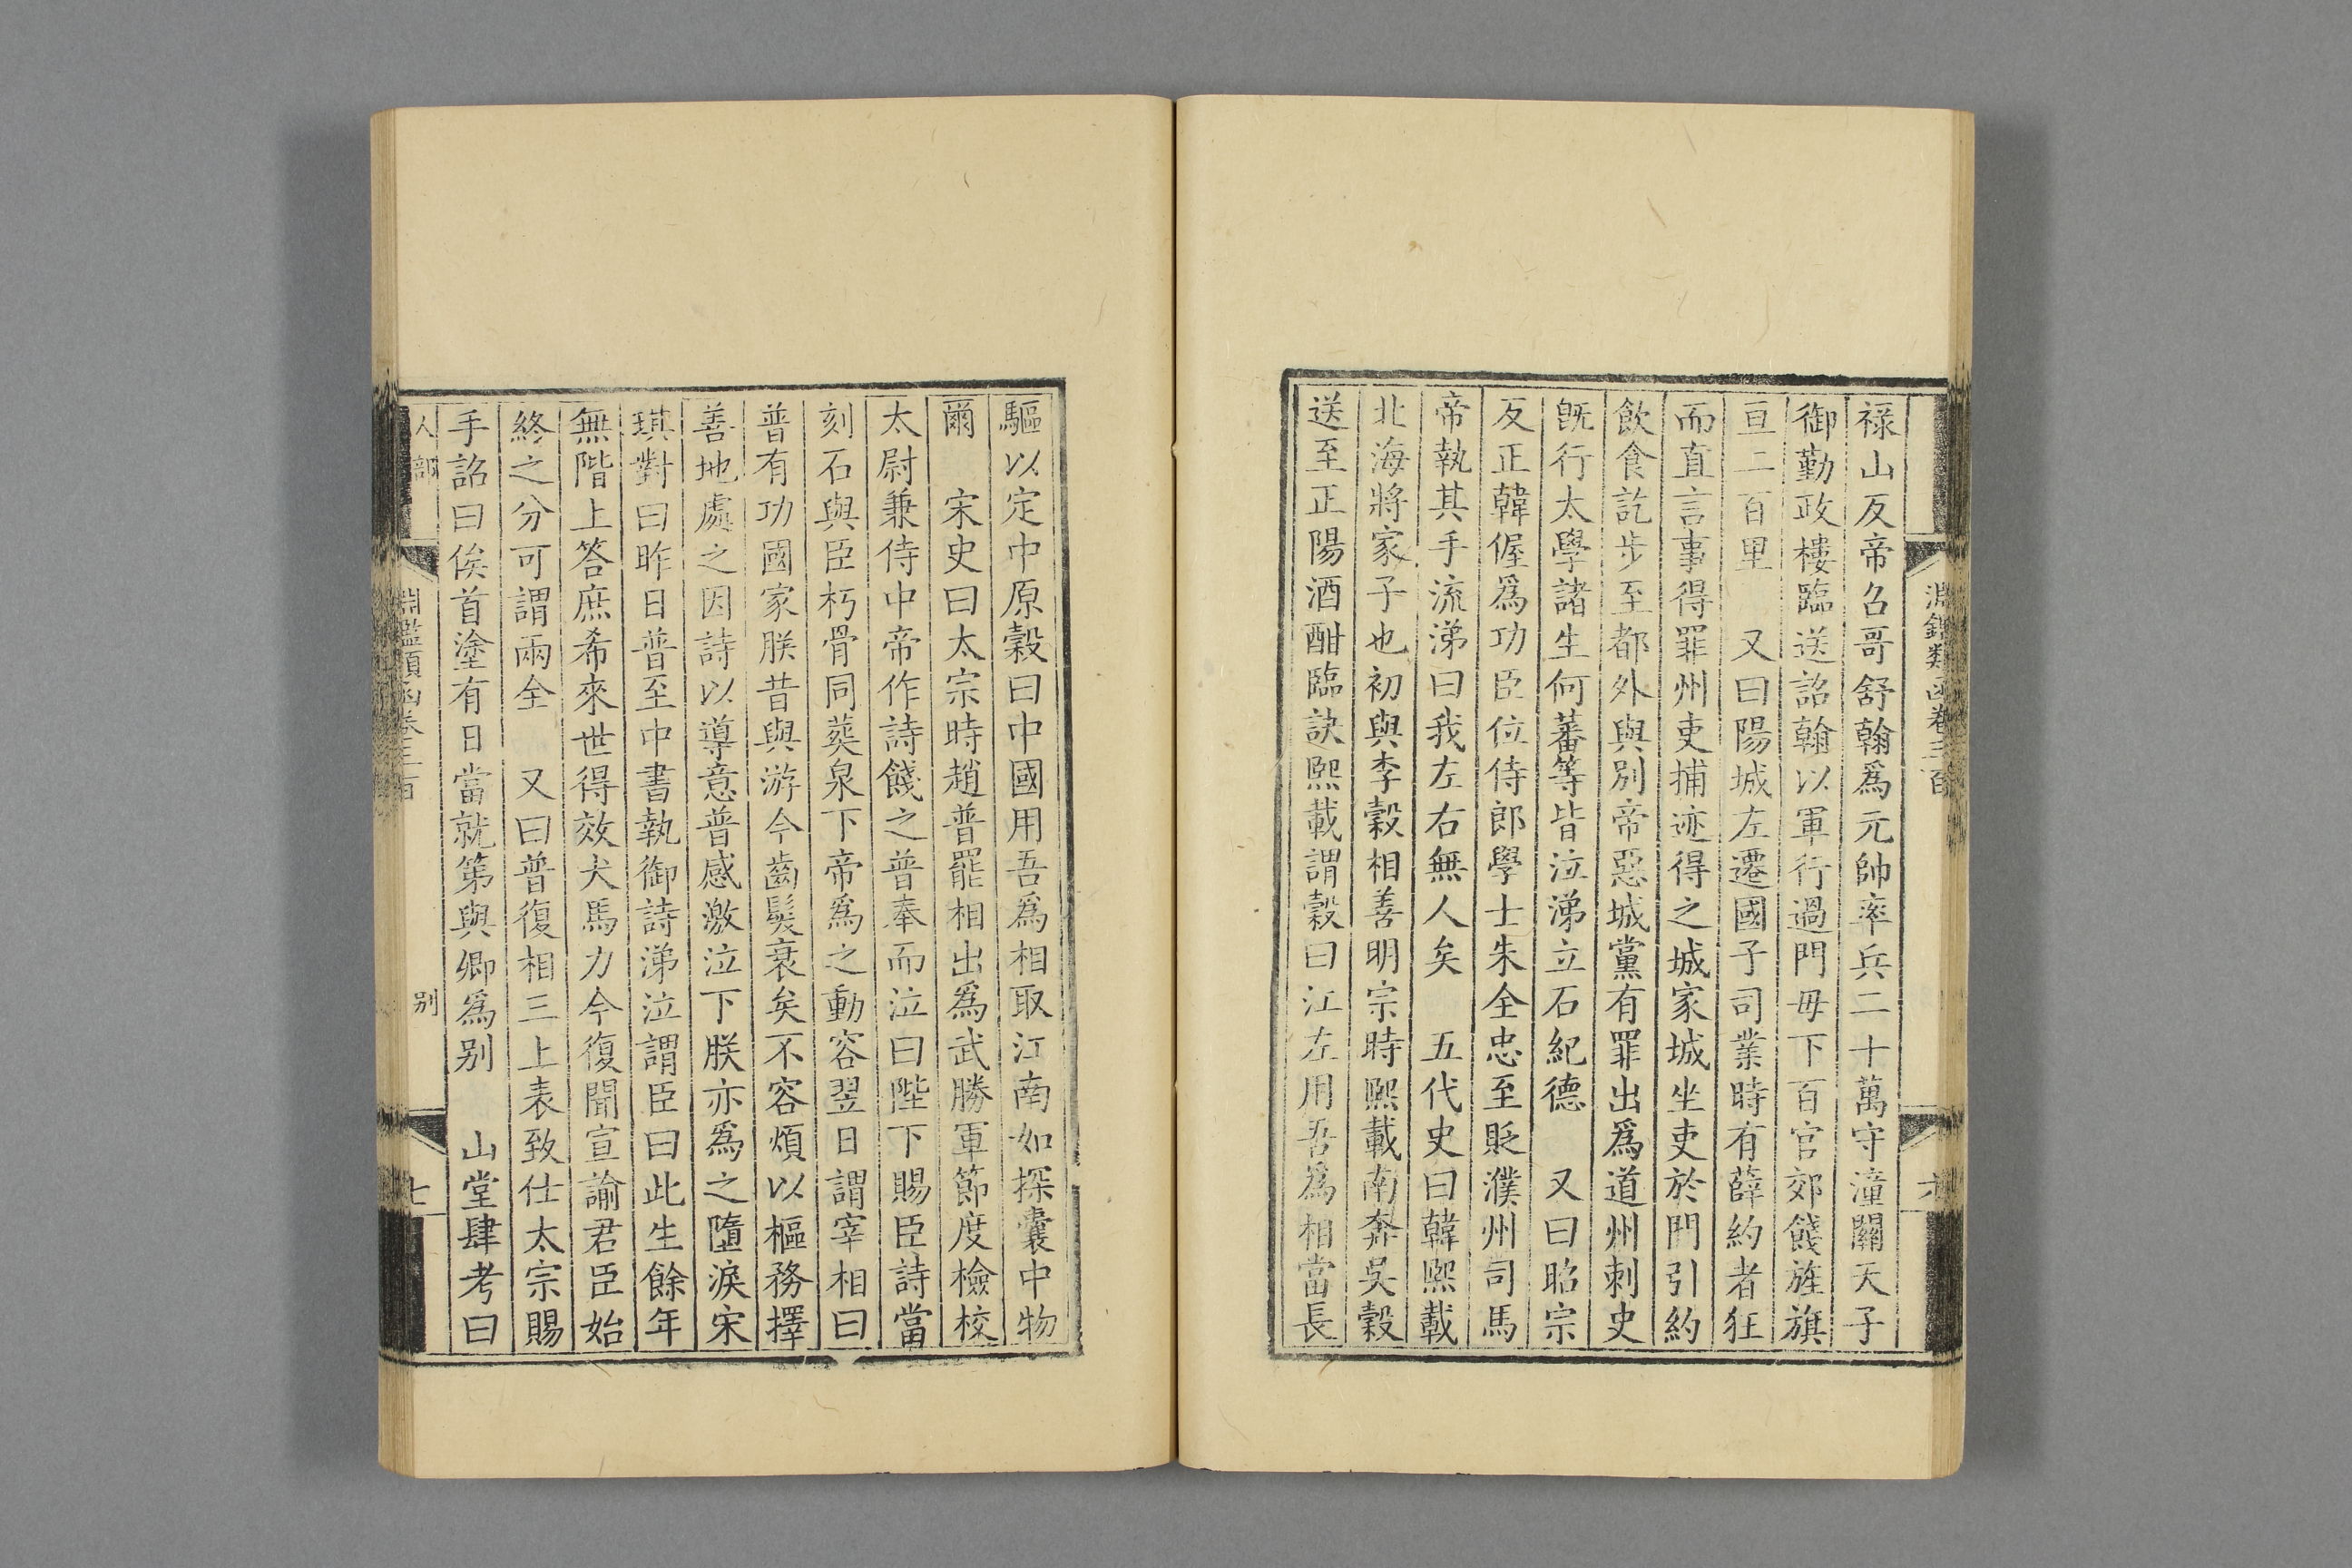 淵鑑類函卷三百
六
祿山反帝召哥舒翰爲元帥率兵二十萬守潼關天子
御勤政樓臨送詔翰以軍行過門毋下百官郊餞旌旗
亘二百里　又曰陽城左遷國子司業時有薛約者狂
而直言事得罪州吏捕迹得之城家城坐吏於門引約
飲食訖步至都外與別帝惡城黨有罪出爲道州刺史
旣行太學諸生何蕃等皆泣涕立石紀德　又曰昭宗
反正韓偓爲功臣位侍郎學士朱全忠至貶濮州司馬
帝執其手流涕曰我左右無人矣　五代史曰韓熙載
北海將家子也初與李穀相善明宗時熙載南奔吳穀
送至正陽酒酣臨訣熙載謂穀曰江左用吾爲相當長
驅以定中原穀曰中國用吾爲相取江南如探囊中物
爾　宋史曰太宗時趙普罷相出爲武勝軍節度檢校
太尉兼侍中帝作詩餞之普奉而泣曰陛下賜臣詩當
刻石與臣朽骨同葬泉下帝爲之動容翌日謂宰相曰
普有功國家朕昔與游今齒髮衰矣不容煩以樞務擇
善地處之因詩以導意普感激泣下朕亦爲之墮淚宋
琪對曰昨日普至中書執御詩涕泣謂臣曰此生餘年
無階上答庶希來世得效犬馬力今復聞宣諭君臣始
終之分可謂兩全　又曰普復相三上表致仕太宗賜
手詔曰俟首塗有日當就第與卿爲别　山堂肆考曰
人部　別
淵鑑類函卷三百
七